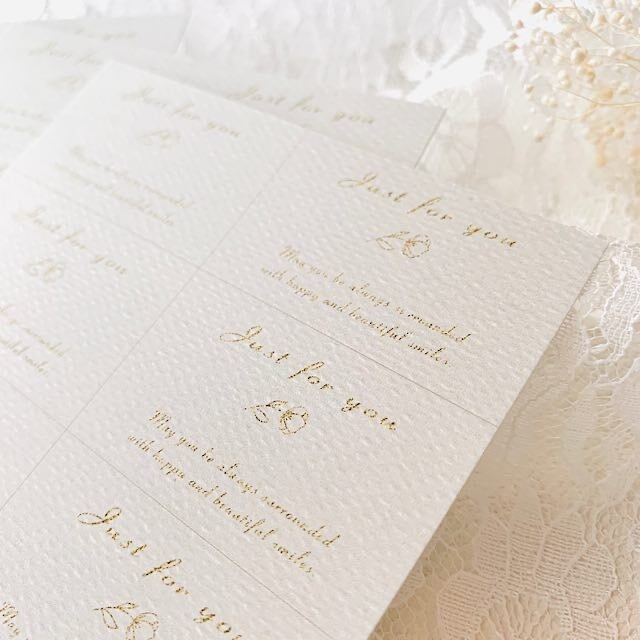 Just for you
Just for you
May you be always surrounded
with happy and beautiful smiles
Just for you
May you be always surrounded
with happy and beautiful smiles
Just for you
Just for you
May you be always surrounded
with happy and beautiful smiles
Just for you